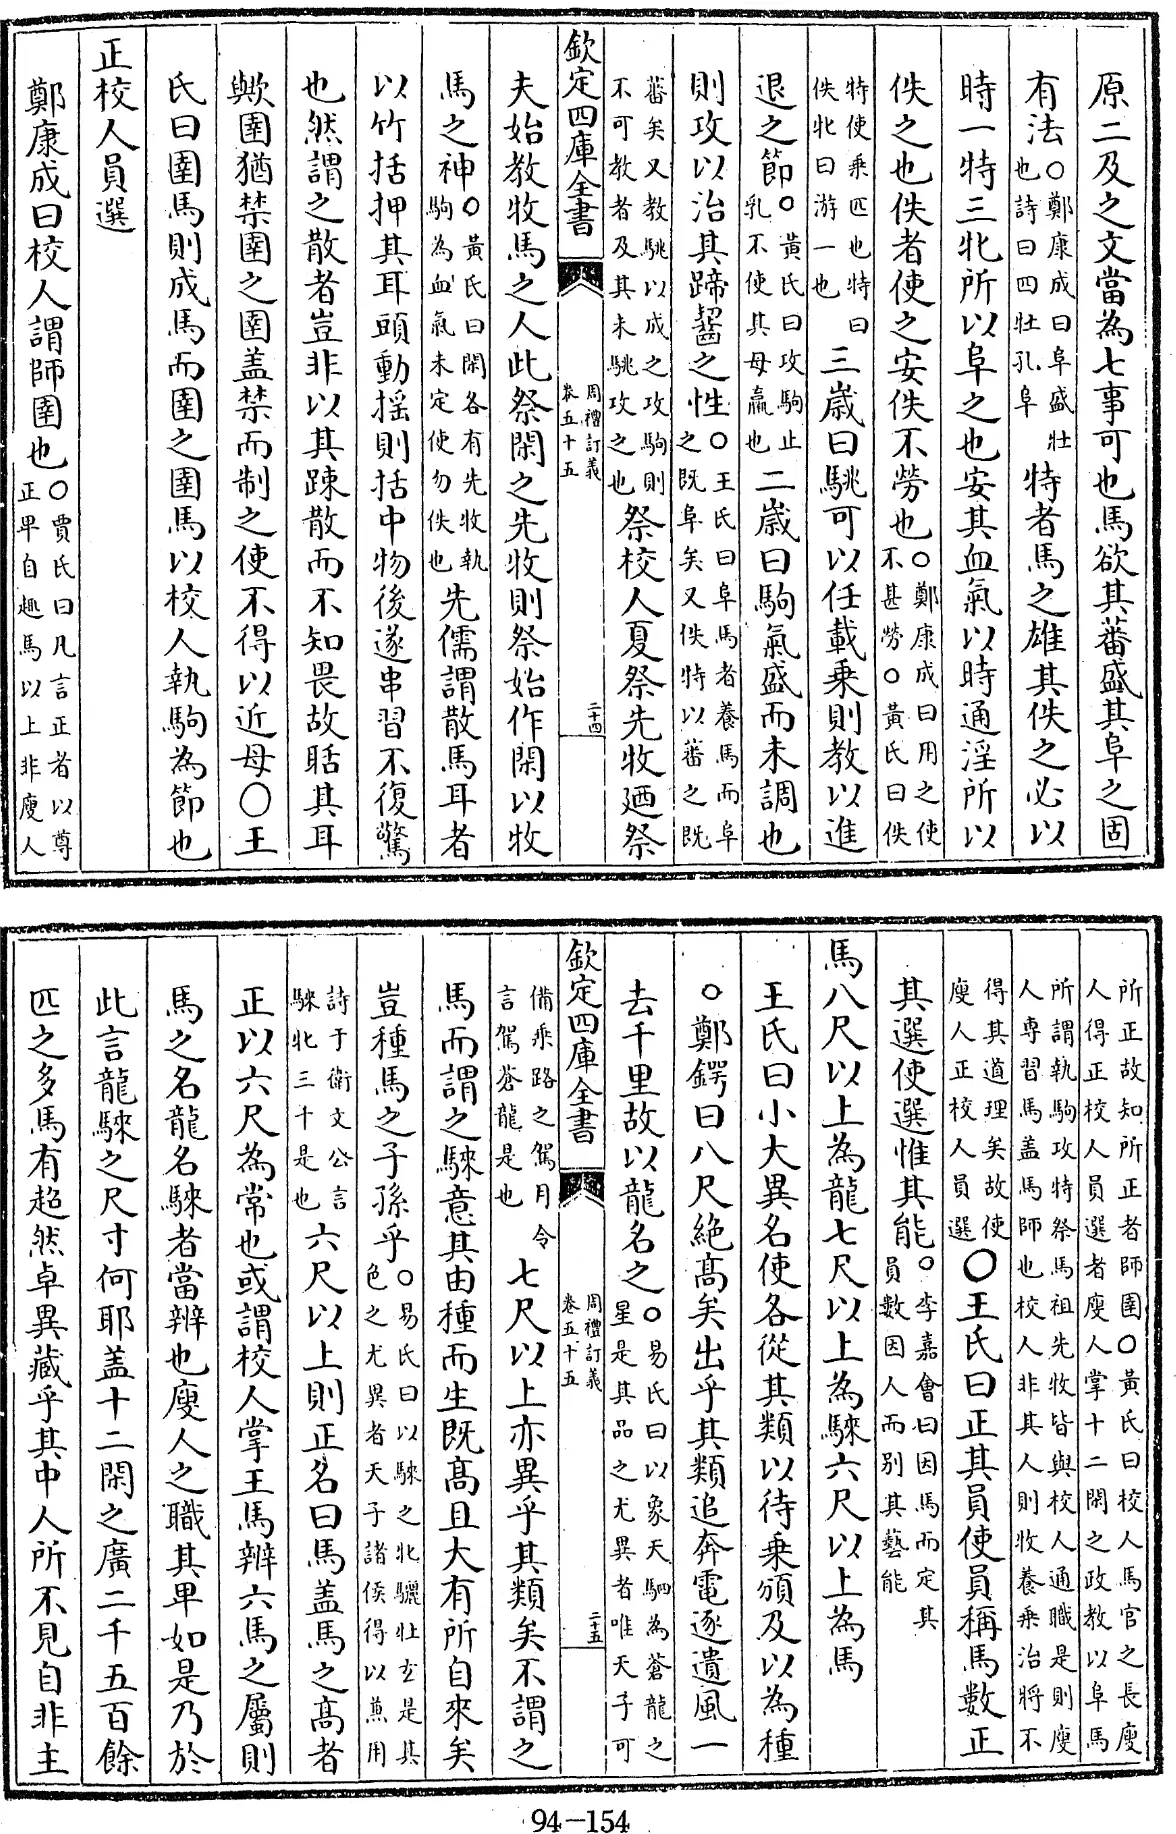 原二及之文當為七事可也馬欲其蕃盛其阜之固
有法〇鄭康成曰阜盛壯也詩曰四牡孔阜特者馬之雄其佚之必以
時一特三牝所以阜之也安其血氣以時通淫所以
佚之也佚者使之安佚不勞也〇鄭康成曰用之使不甚勞〇黃氏曰佚
特使乗匹也特曰佚牝曰游一也三歲曰駣可以任載乗則教以進
退之節〇黃氏曰攻駒止乳不使其母羸也二歲曰駒氣盛而未調也
則攻以治其蹄齧之性〇王氏曰阜馬者養馬而阜之既阜矣又佚特以蕃之既
蕃矣又教駣以成之攻駒則不可教者及其未駣攻之也祭校人夏祭先牧廼祭
欽定四庫全書
周禮訂義
卷五十五
二十四
夫始教牧馬之人此祭閑之先牧則祭始作閑以牧
馬之神〇黃氏曰閑各有先牧執駒為血氣未定使勿佚也先儒謂散馬耳者
以竹括押其耳頭動揺則括中物後遂串習不復驚
也然謂之散者豈非以其踈散而不知畏故聒其耳
歟圉猶禁圉之圉盖禁而制之使不得以近母〇王
氏曰圉馬則成馬而圉之圉馬以校人執駒為節也
正校人員選
鄭康成曰校人謂師圉也〇賈氏曰凡言正者以尊正卑自趣馬以上非廋人
所正故知所正者師圉〇黃氏曰校人馬官之長廋人得正校人員選者廋人掌十二閑之政教以阜馬
所謂執駒攻特祭馬祖先牧皆與校人通職是則廋人專習馬盖馬師也校人非其人則牧養乗治將不
得其道理矣故使廋人正校人員選〇王氏曰正其員使員稱馬數正
其選使選惟其能〇李嘉會曰因馬而定其員數因人而別其藝能
馬八尺以上為龍七尺以上為騋六尺以上為馬
王氏曰小大異名使各從其類以待乗頒及以為種
〇鄭鍔曰八尺絶髙矣出乎其類追奔電逐遺風一
去千里故以龍名之〇易氏曰以象天駟為蒼龍之星是其品之尤異者唯天子可
欽定四庫全書
周禮訂義
卷五十五
二十五
備乗路之駕月令言駕蒼龍是也七尺以上亦異乎其類矣不謂之
馬而謂之騋意其由種而生既髙且大有所自來矣
豈種馬之子孫乎〇易氏曰以騋之牝驪牡𤣥是其色之尤異者天子諸侯得以兼用
詩于衛文公言騋牝三千是也六尺以上則正名曰馬盖馬之髙者
正以六尺為常也或謂校人掌王馬辨六馬之屬則
馬之名龍名騋者當辨也廋人之職其卑如是乃於
此言龍騋之尺寸何耶盖十二閑之廣二千五百餘
匹之多馬有超然卓異藏乎其中人所不見自非主
94-154